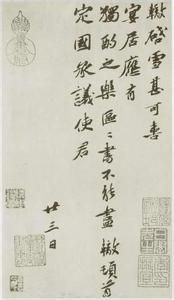 轍啟雪甚可喜
宴居應有
獨酌之樂區〻書不能盡轍頓首
定國承議使君
廿三日